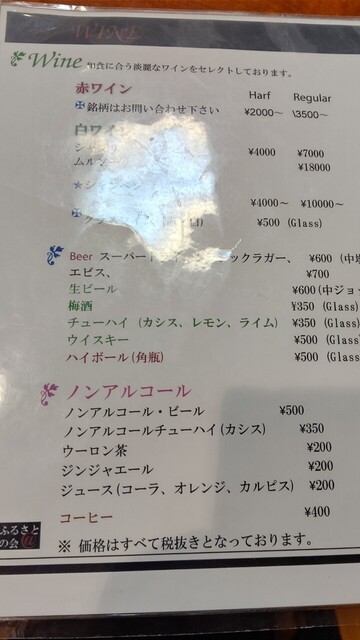 WINE
Wine 和食に合う淡麗なワインをセレクトしております。
赤ワイン Harf Regular
銘柄はお問い合わせ下さい ¥2000～ \3500～
白ワイン
¥4000 ¥7000
ムルソー ¥18000
¥4000～ ¥10000～
¥500 (Glass)
Beer スーパー ックラガー、 ¥600 (中
エビス、 ¥700
生ビール ¥600(中ジョ
梅酒 ¥350 (Glass)
チューハイ (カシス、レモン、ライム) ¥350 (Glass)
ウイスキー ¥500 (Glass
ハイボール(角瓶) ¥500 (Glass
ノンアルコール
ノンアルコール・ビール ¥500
ノンアルコールチューハイ(カシス) ¥350
ウーロン茶 ¥200
ジンジャエール ¥200
ジュース(コーラ、オレンジ、カルピス) ¥200
コーヒー ¥400
ふるさと
の会
※ 価格はすべて税抜きとなっております。